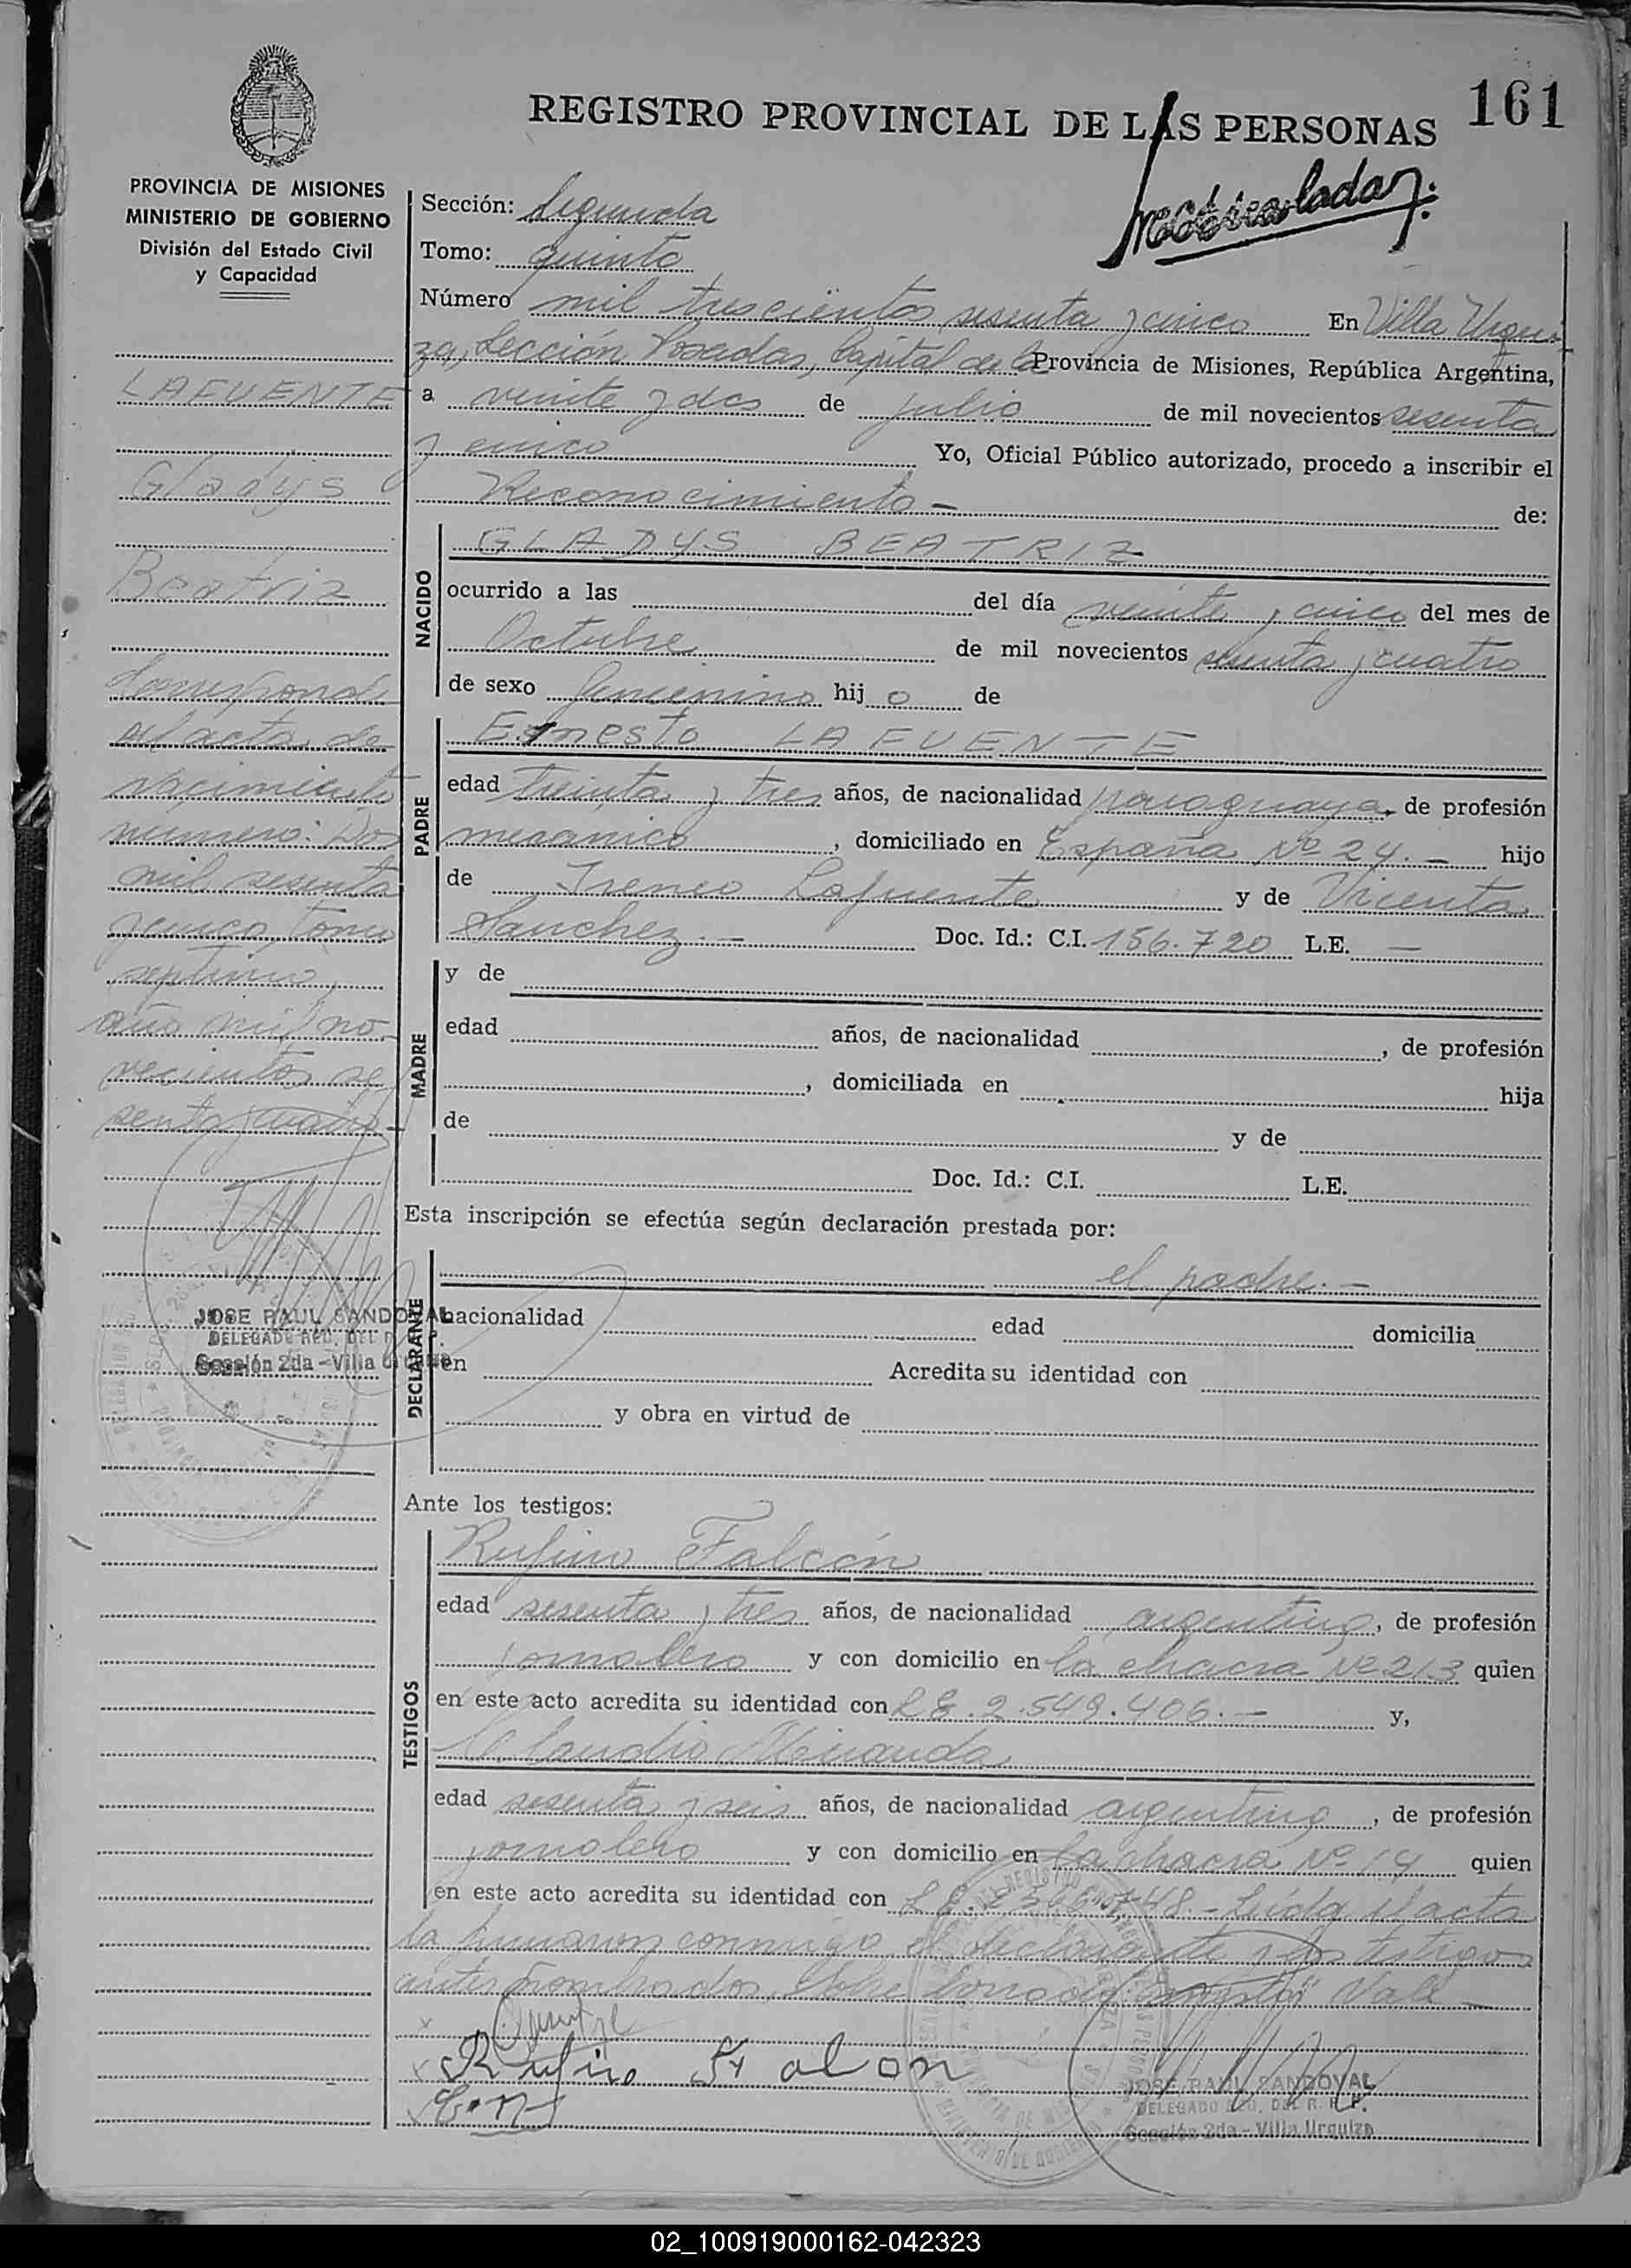 161
REGISTRO PROVINCIAL DE LAS PERSONAS
PROVINCIA DE MISIONES
MINISTERIO DE GOBIERNO
División del Estado Civil
y Capacidad
LAFUENTE
Gladys
Beatriz
Corresponde
al acta de
nacimiento
numero: Dos
mil sesenta
y cinco, tomo
septimo,
año mil no
vecientos se
senta y cuatro
JOSE RAUL SANDOVAL
DELEGADO
Sección 2da - Villa
Sección: Segunda
Tomo: quinto
Número mil trescientos sesenta y cinco En Villa Urqui
za, Sección Posadas, Capital de la Provincia de Misiones, República Argentina,
a veinte y dos de julio de mil novecientos sesenta
y cinco Yo, Oficial Público autorizado, procedo a inscribir el
Reconocimiento - de:
NACIDO
GLADYS BEATRIZ
ocurrido a las del día veinte y cinco del mes de
Octubre de mil novecientos sesenta y cuatro
de sexo femenino hij o de
PADRE
Ernesto LAFUENTE
edad treinta y tres años, de nacionalidad paraguaya, de profesión
mecanico, domiciliado en España Nº 24. - hijo
de Ireneo Lafuente y de Vicenta
Sanchez. - Doc. Id.: C.I. 156.720 L.E. —
MADRE
y de
edad años, de nacionalidad , de profesión
, domiciliada en hija
de y de
Doc. Id.: C.I. L.E.
Esta inscripción se efectúa según declaración prestada por:
DECLARANTE
el padre. -
nacionalidad edad domicilia
en Acredita su identidad con
y obra en virtud de
Ante los testigos:
TESTIGOS
Rufino Falcón
edad sesenta y tres años, de nacionalidad argentino, de profesión
jornalero y con domicilio en la chacra Nº 213 quien
en este acto acredita su identidad con LE. 2.549.406. - y,
Claudio Miranda
edad sesenta y seis años, de nacionalidad argentino, de profesión
jornalero y con domicilio en la chacra Nº 14 quien
en este acto acredita su identidad con L.E. - Leída el acta
la firmaron conmigo el declarante y los testigos
antes nombrados. Sobre borrado: Vale -
Rufino Falcon
JOSE RAUL SANDOVAL
DELEGADO DEL R. P. P.
Sección 2da - Villa Urquiza
02_100919000162-042323